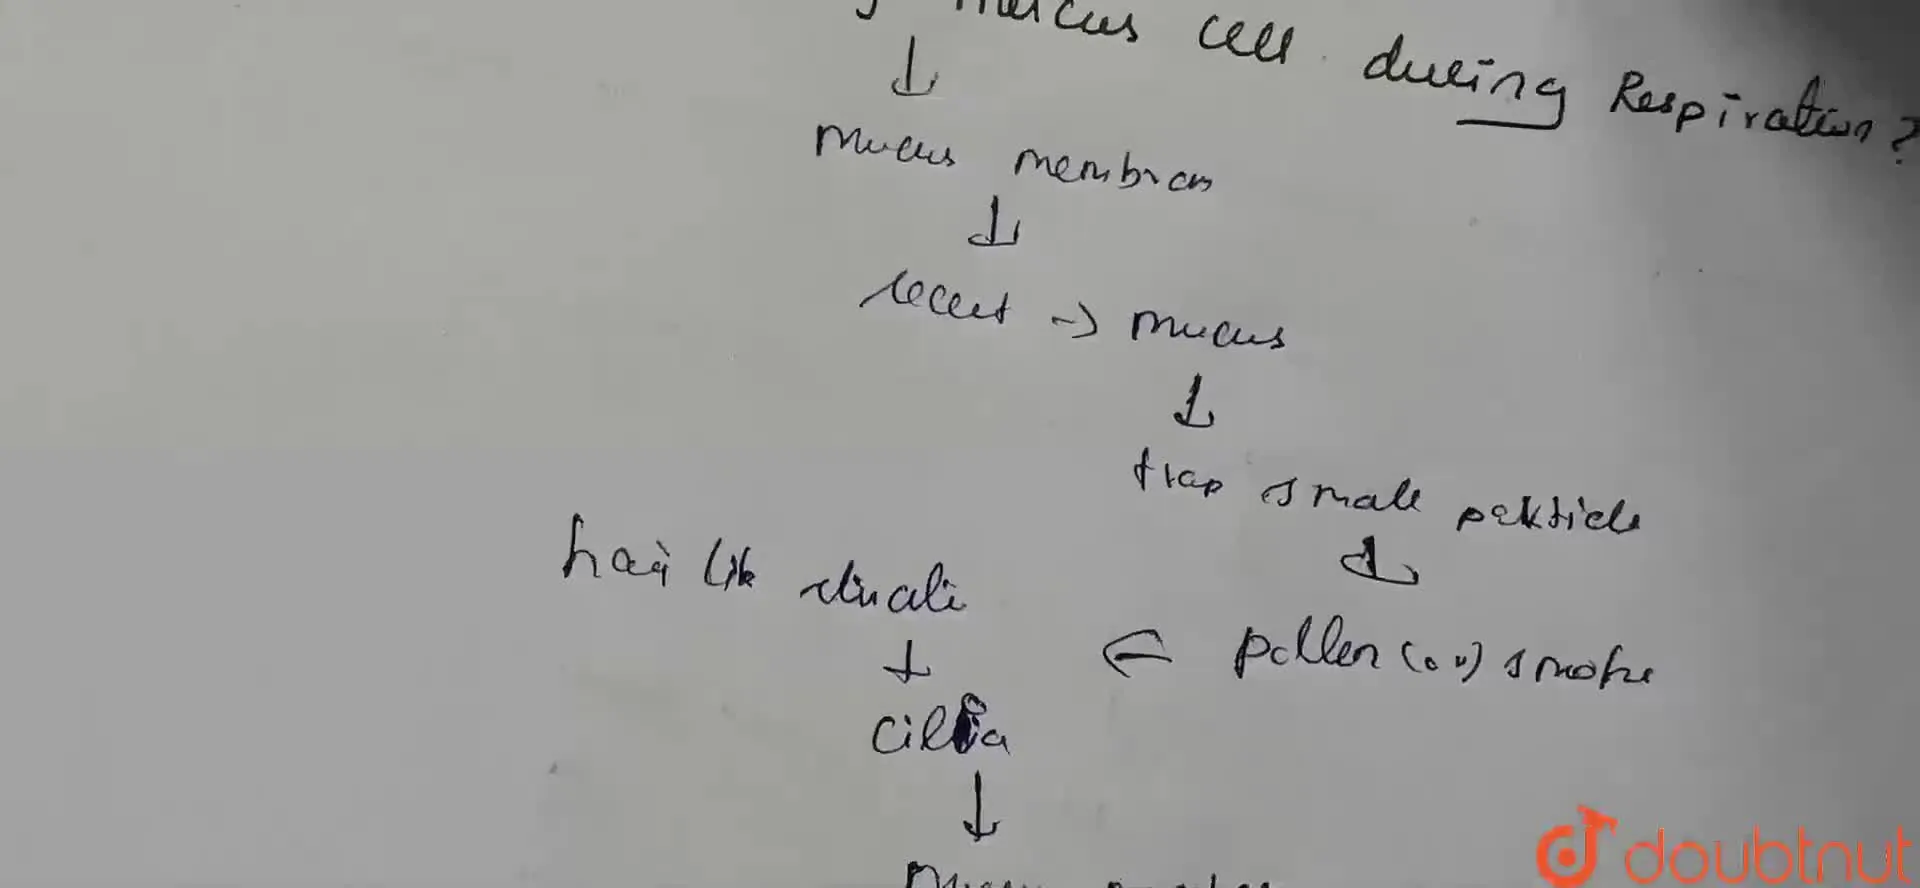 mucus cell during Respiration?
mucus membran
secret → mucus
trap small partticle
hair lik
pollen (or) smoke
cilia
doubtnut